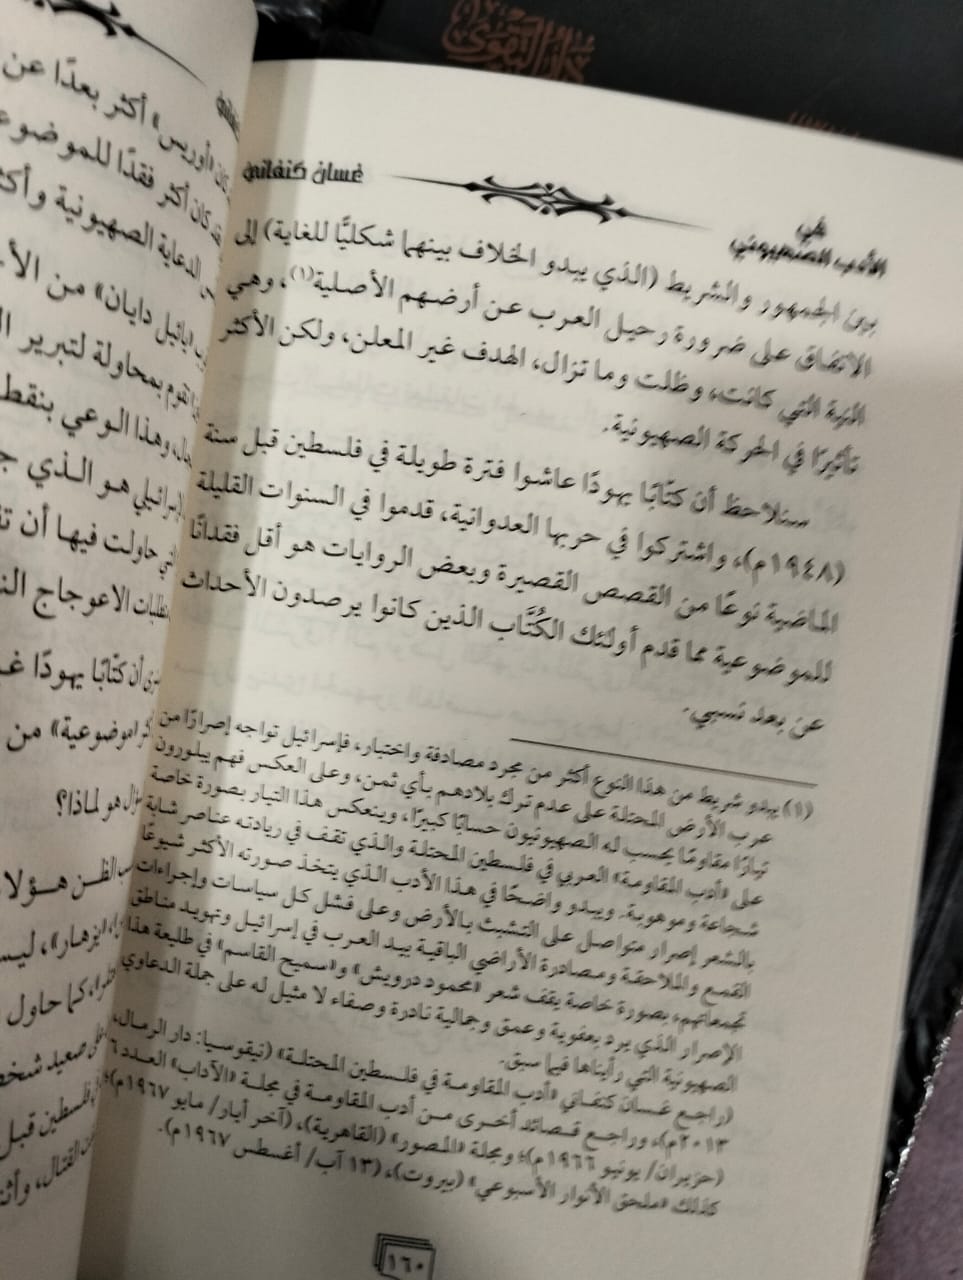 دار التقوى
غسان كنفاني
في
الأدب الصهيوني
بين الجمهور والشريط (الذي يبدو الخلاف بينهما شكليًّا للغاية) إلى
الاتفاق على ضرورة رحيل العرب عن أرضهم الأصلية(١)، وهي
النية التي كانت، وظلت وما تزال، الهدف غير المعلن، ولكن الأكثر
تأثيرًا في الحركة الصهيونية.
سنلاحظ أن كتّابًا يهودًا عاشوا فترة طويلة في فلسطين قبل سنة
(١٩٤٨م)، واشتركوا في حربها العدوانية، قدموا في السنوات القليلة
الماضية نوعًا من القصص القصيرة وبعض الروايات هو أقل فقدانًا
للموضوعية مما قدم أولئك الكُتَّاب الذين كانوا يرصدون الأحداث
عن بعد نسبي.
(١) يبدو شريط من هذا النوع أكثر من مجرد مصادفة واختبار، فإسرائيل تواجه إصرارًا من
عرب الأرض المحتلة على عدم ترك بلادهم بأي ثمن، وعلى العكس فهم يبلورون
تيارًا مقاومًا يحسب له الصهيونيون حسابًا كبيرًا، وينعكس هذا التيار بصورة خاصة
على «أدب المقاومة» العربي في فلسطين المحتلة والذي تقف في ريادته عناصر شابة
شجاعة وموهوبة. ويبدو واضحًا في هذا الأدب الذي يتخذ صورته الأكثر شيوعًا
بالشعر إصرار متواصل على التشبث بالأرض وعلى فشل كل سياسات وإجراءات
القمع والملاحقة ومصادرة الأراضي الباقية بيد العرب في إسرائيل وتهويد مناطق
تجمعاتهم، بصورة خاصة يقف شعر «محمود درويش» و«سميح القاسم» في طليعة هذا
الإصرار الذي يرد بعفوية وعمق وجمالية نادرة وصفاء لا مثيل له على جملة الدعاوي
الصهيونية التي رأيناها فيما سبق.
(راجع غسان كنفاني «أدب المقاومة في فلسطين المحتلة» (نيقوسيا: دار الرمال،
٢٠١٣م)، وراجع قصائد أخرى من أدب المقاومة في مجلة «الآداب» العدد ٦
(حزيران/ يونيو ١٩٦٦م)؛ ومجلة «المصور» (القاهرية)، (آخر أيار/ مايو ١٩٦٧م)؛
كذلك «ملحق الأنوار الأسبوعي» (بيروت)، (١٣ آب/ أغسطس ١٩٦٧م).
١٦٠
كان «أوريس» أكثر بعدًا عن
كان أكثر فقدًا للموضوع
الدعاية الصهيونية وأكث
دايان» من الأ
بمحاولة لتبرير ال
وهذا الوعي بنقط
هو الذي ج
حاولت فيها أن تق
الاعوجاج الن
أن كتّابًا يهودًا غ
موضوعية» من
هو لماذا؟
الظن هؤلا
«يزهار»، ليس
كما حاول
صعيد شخص
فلسطين قبل
القتال، وأثن